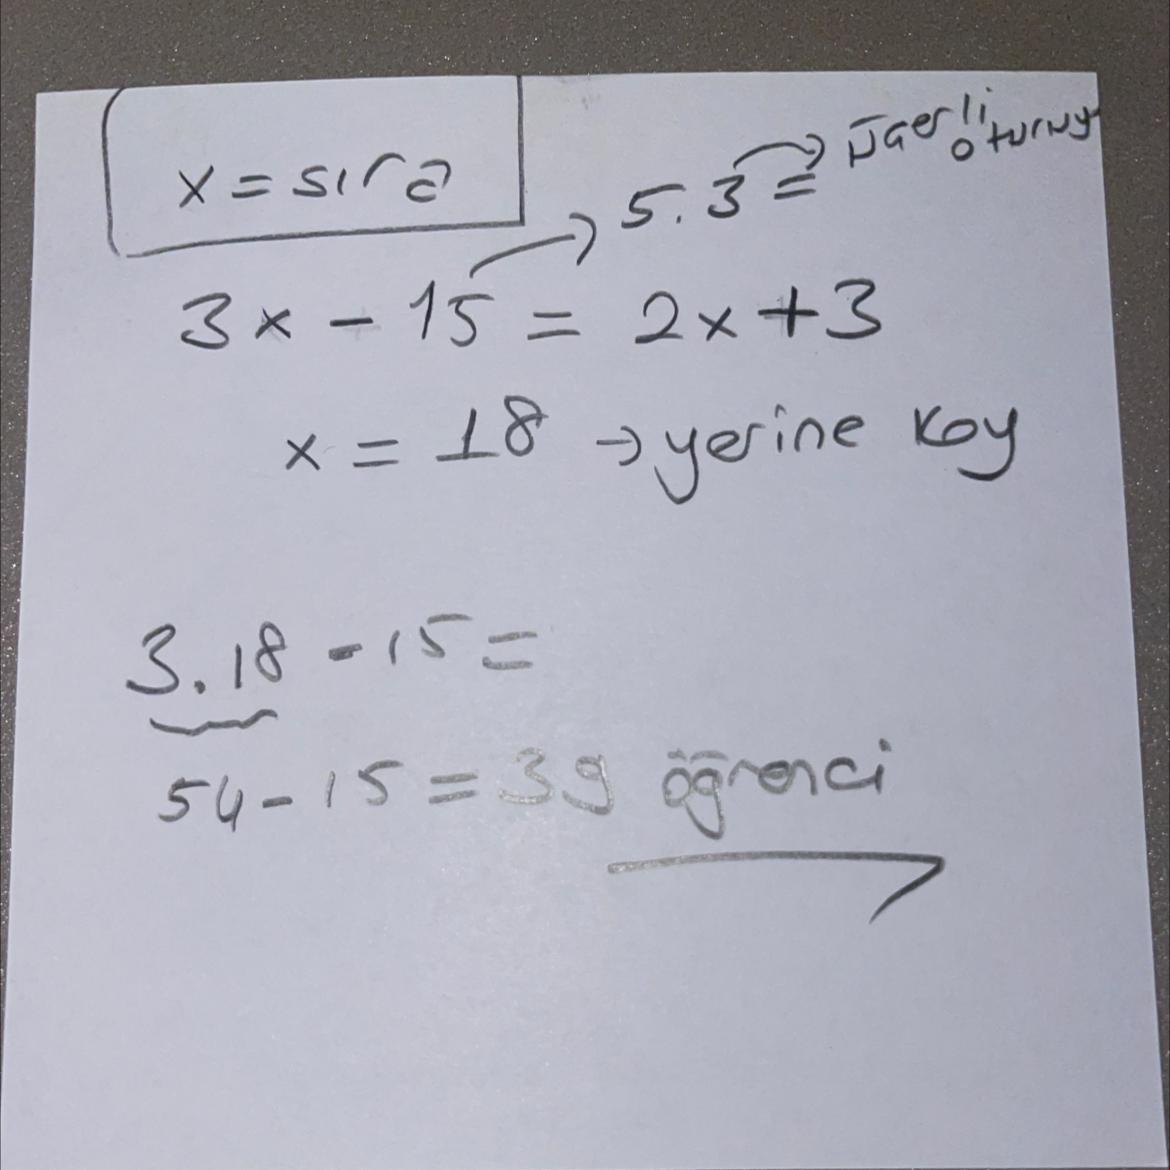 x = sıra
5.3 = üçerli oturuy
3x - 15 = 2x + 3
x = 18 → yerine koy
3.18 - 15 =
54 - 15 = 39 öğrenci